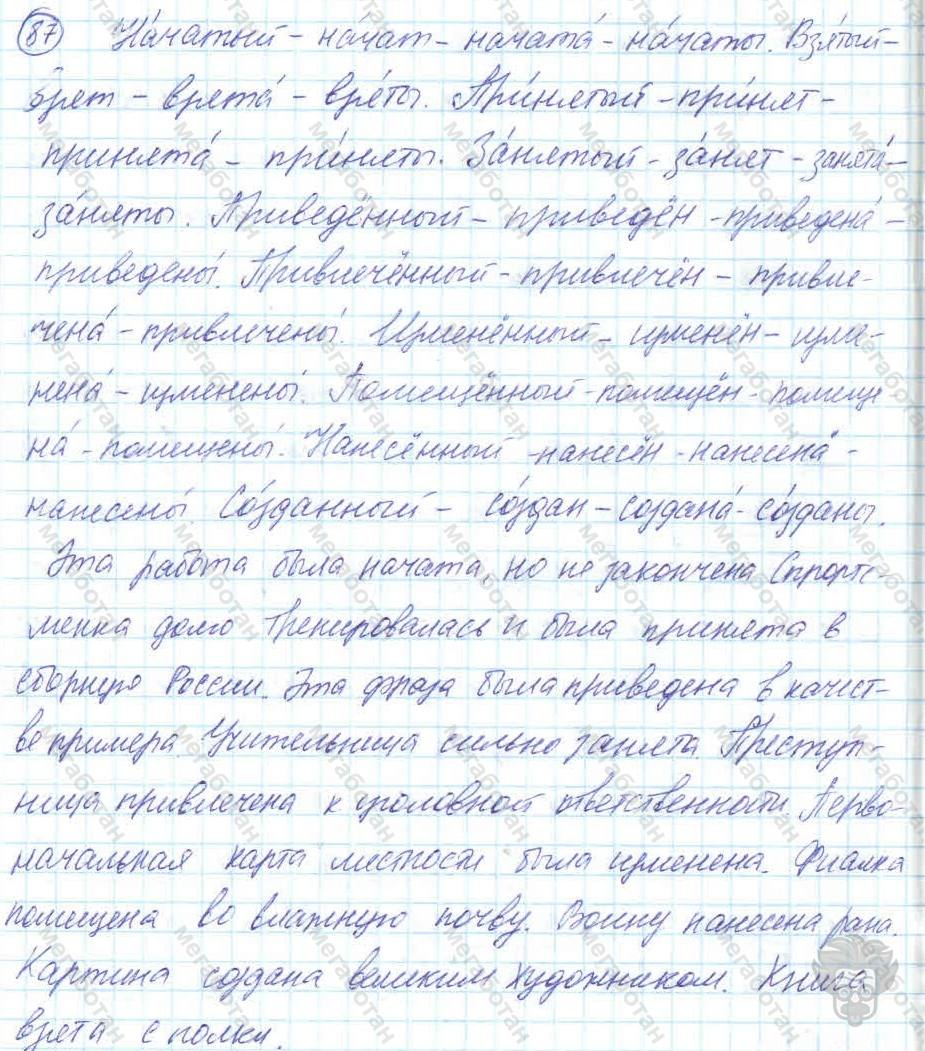 87 На́чатый - на́чат - начата́ - на́чаты. Взя́тый -
взят - взята́ - взя́ты. При́нятый - при́нят -
принята́ - при́няты. За́нятый - за́нят - занята́ -
за́няты. Приведённый - приведён - приведена́ -
приведены́. Привлечённый - привлечён - привле-
чена́ - привлечены́. Изменённый - изменён - изме-
нена́ - изменены́. Помещённый - помещён - помеще
на́ - помещены́. Нанесённый - нанесён - нанесена́ -
нанесены́ Со́зданный - со́здан - создана́ - со́зданы.
Эта работа была начата, но не закончена Спротс-
менка долго тренировалась и была принята в
сборную России. Эта фраза была приведена в качест-
ве примера Учительница сильно занята. Преступ-
ница привлечена к уголовной ответственности. Перво-
начальная карта местности была изменена. Фиалка
помещена во влажную почву. Воину нанесена рана.
Картина создана великим художником. Книга
взята с полки.
Мегаботан